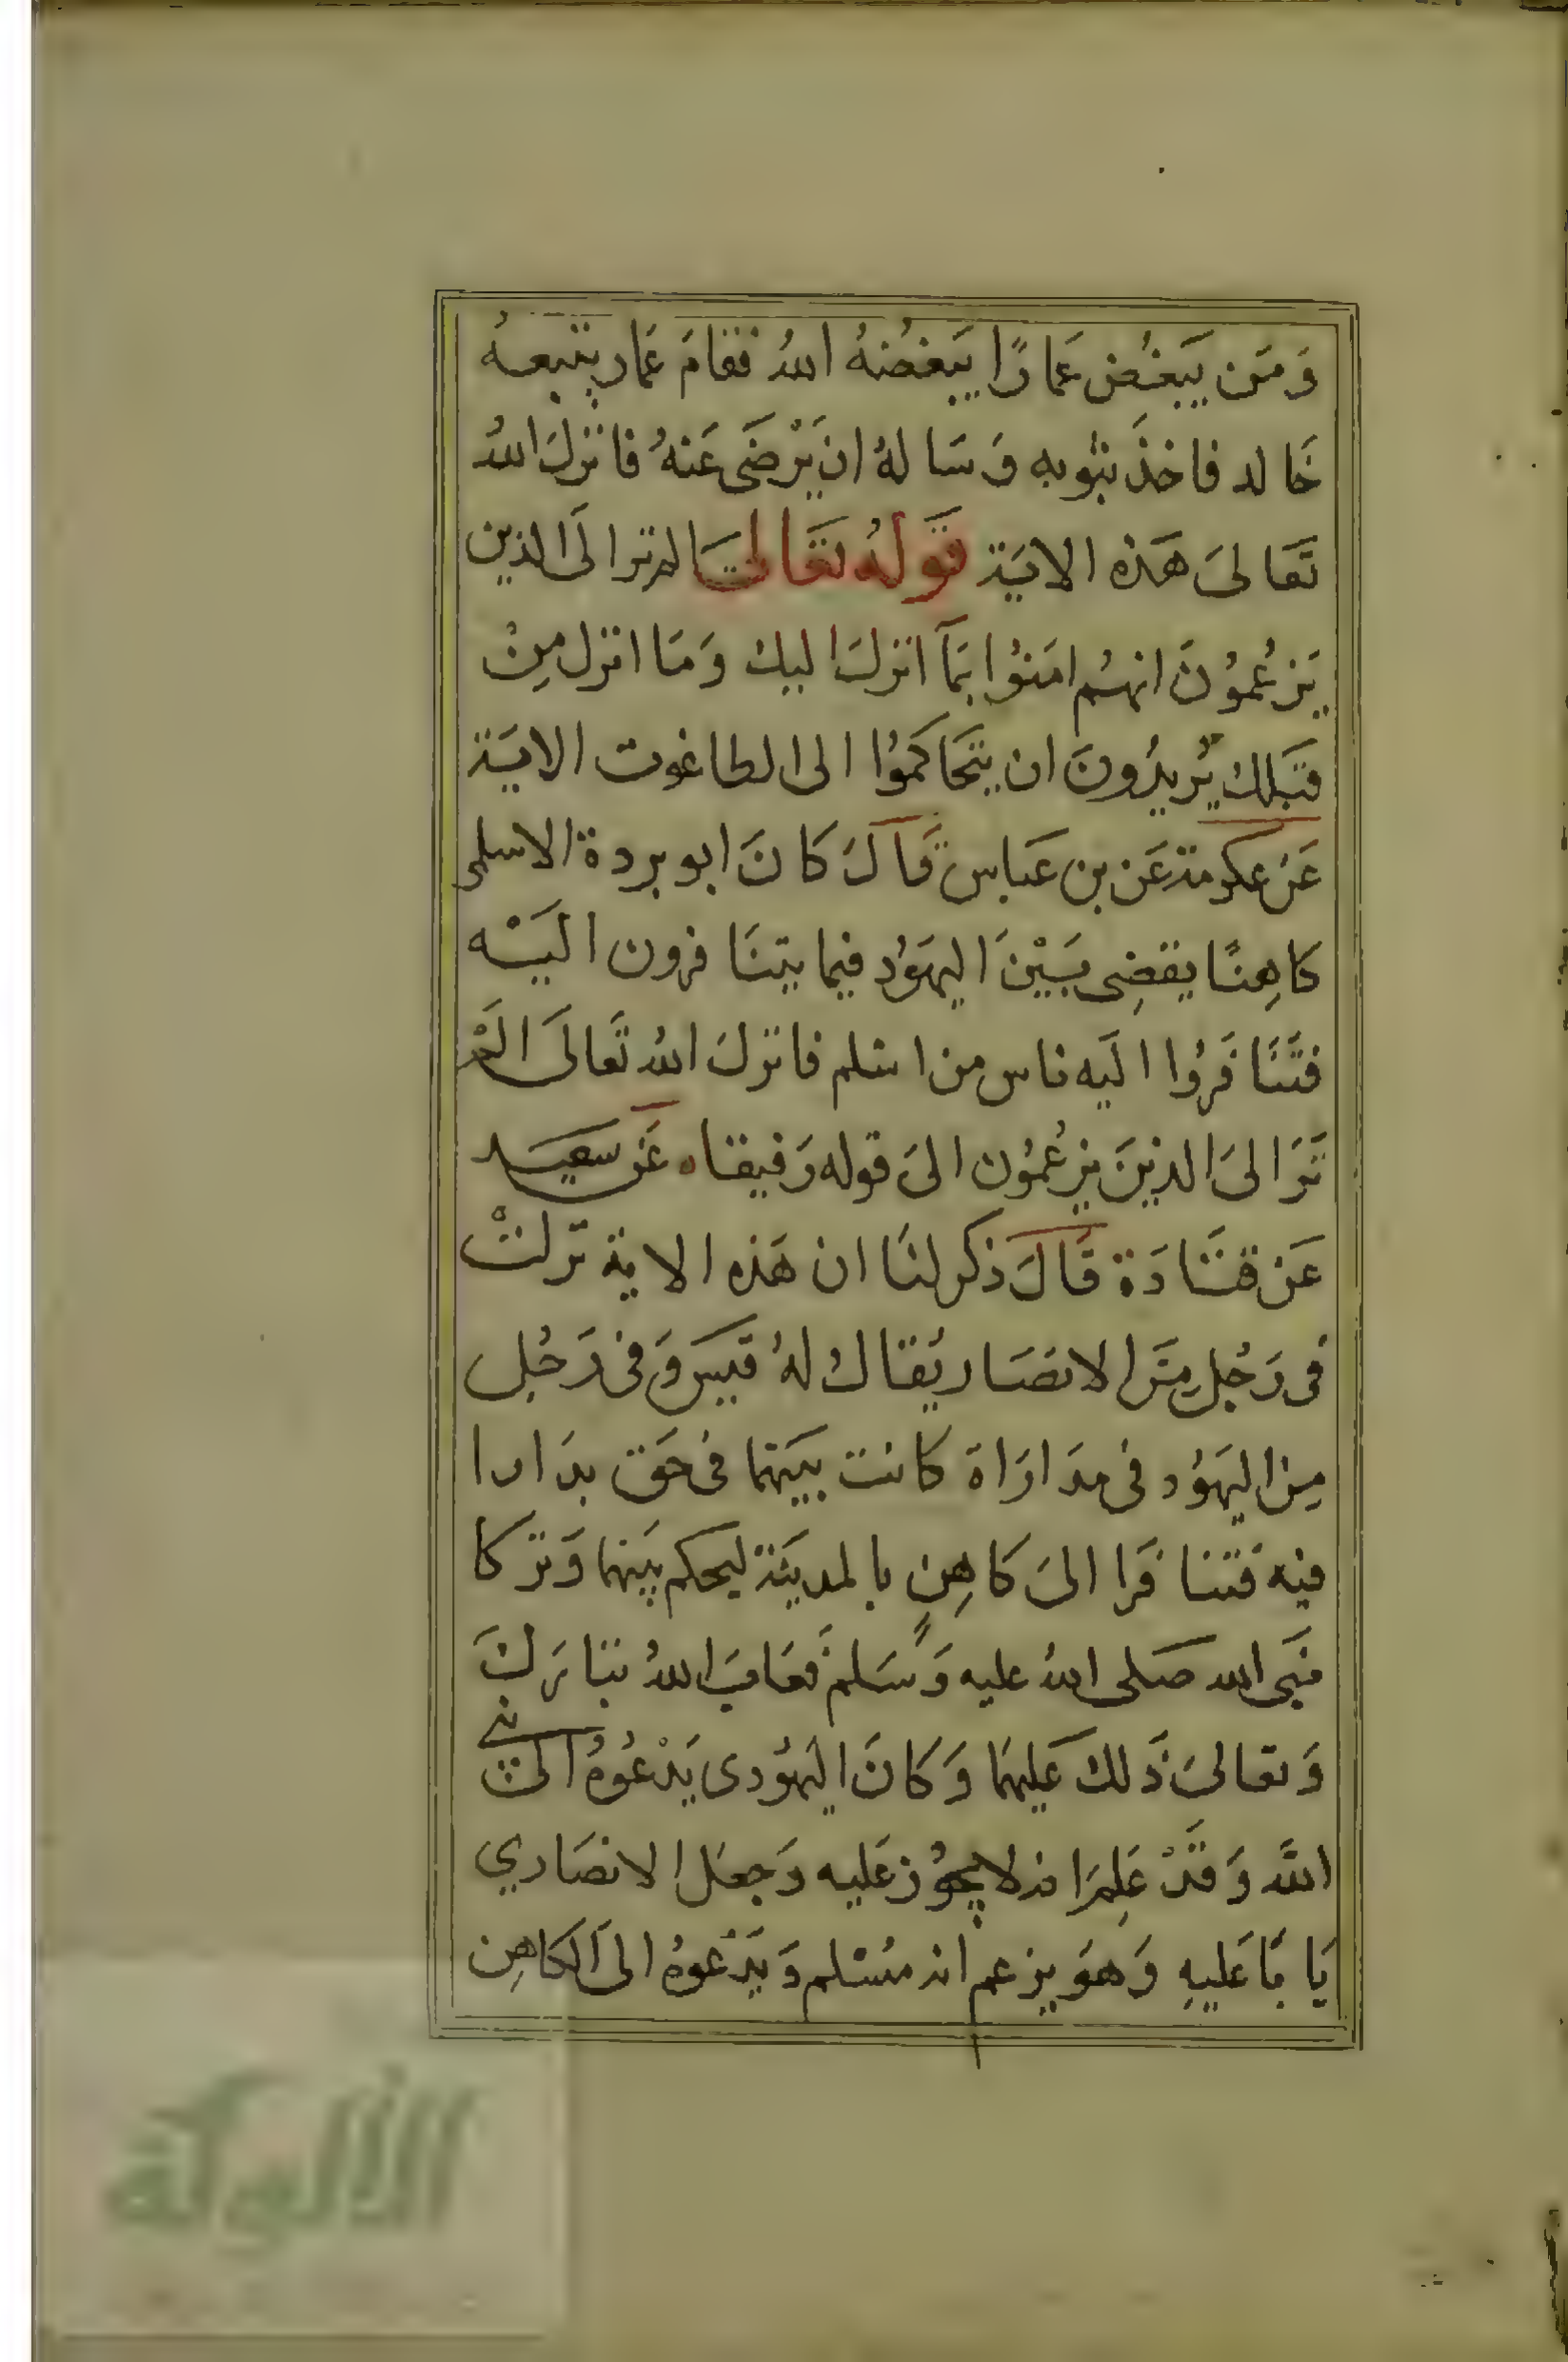 وَمَن يَبغُض عَمارًا يَبغضهُ اللهُ فقامَ عَمار يتبعهُ
خَالد فاخذَ بثوبه وَسَالهُ ان يَرْضَى عَنهُ فانزلَ اللهُ
تَعَالىَ هَذه الايَة قَولهُ تعَالىَ المر ترا لَى الذين
يَزعُمُونَ انهُم امَنوُا بمَآ انزلَ اليك وَمَا انزل مِنْ
قبَلك يُريدُونَ ان يتحَاكمَوُا الى الطاغوت الايَة
عَن عكرمة عَن بن عَباس قَالَ كَانَ ابو بردة الاسلمى
كاهِنًا يقضِى بَيْنَ اليهَوُد فيما يتنَافرون اليَه
فتَنَافَرُوا اليَه ناس من اسلم فانزلَ اللهُ تَعَالَى المَْ
تَرَ الىَ الذينَ يزعُمُون الىَ قوله رَفيقا ه عَن سَعيَد
عَن قتَادَة قَالَ ذكر لنَا ان هَذه الاية نزلتْ
فى رَجُل مِنَ الانصَار يُقاَلُ لهُ قَيس وَفى رَجُل
مِن اليهَوُد فى مدَارَاة كانت بَينهما فى حَق بدَارا
فيه فَتنافَرا الىَ كَاهِنٍ بالمدينَة ليحكم بَينهما وَتركا
نبَى الله صَلى اللهُ عليه وَسَلم فعَابَ اللهُ تبَارَكَ
وَتعالىَ ذَلك عَليهَما وَكانَ اليَهوُدى يَدْعُوهُ الى نبي
اللَّه وَقَدْ عَلِمَ انه لا يجوُز عَليه وَجعَل الانصَاري
يَابَا عَليهِ وَهوَ يزعم انه مسُلم وَيَدْعوهُ الىَ الكاهِن
الألوكة